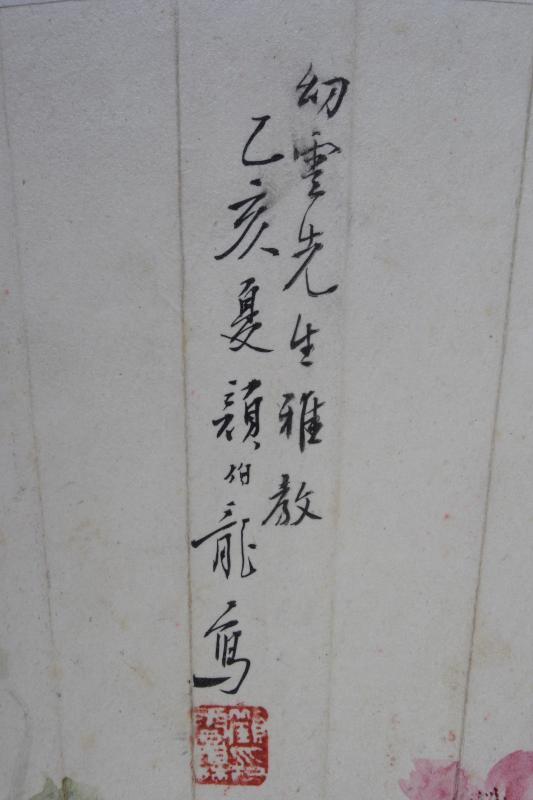 幻雲先生雅教
乙亥夏顏伯龍寫